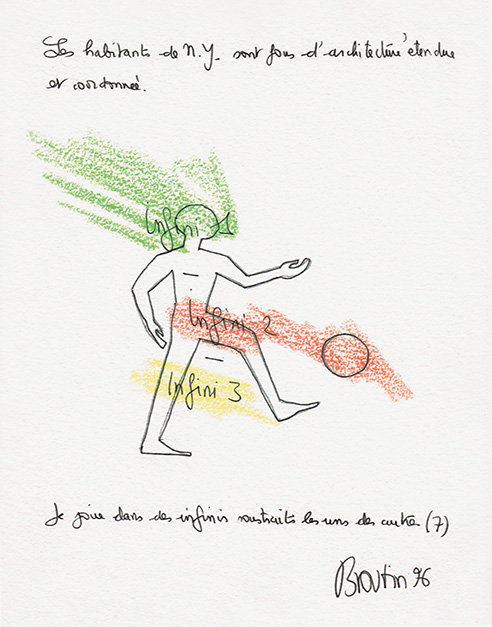 Les habitants de N.Y. sont fous d'architecture étendue
et coordonnée.
Infini 1
Infini 2
Infini 3
Je joue dans des infinis soustraits les uns des autres (7)
Broutin 96